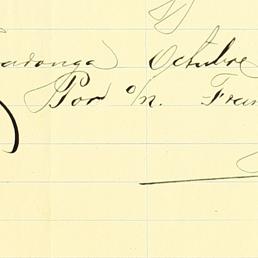 adonga Octubre
Por o/n. Fran